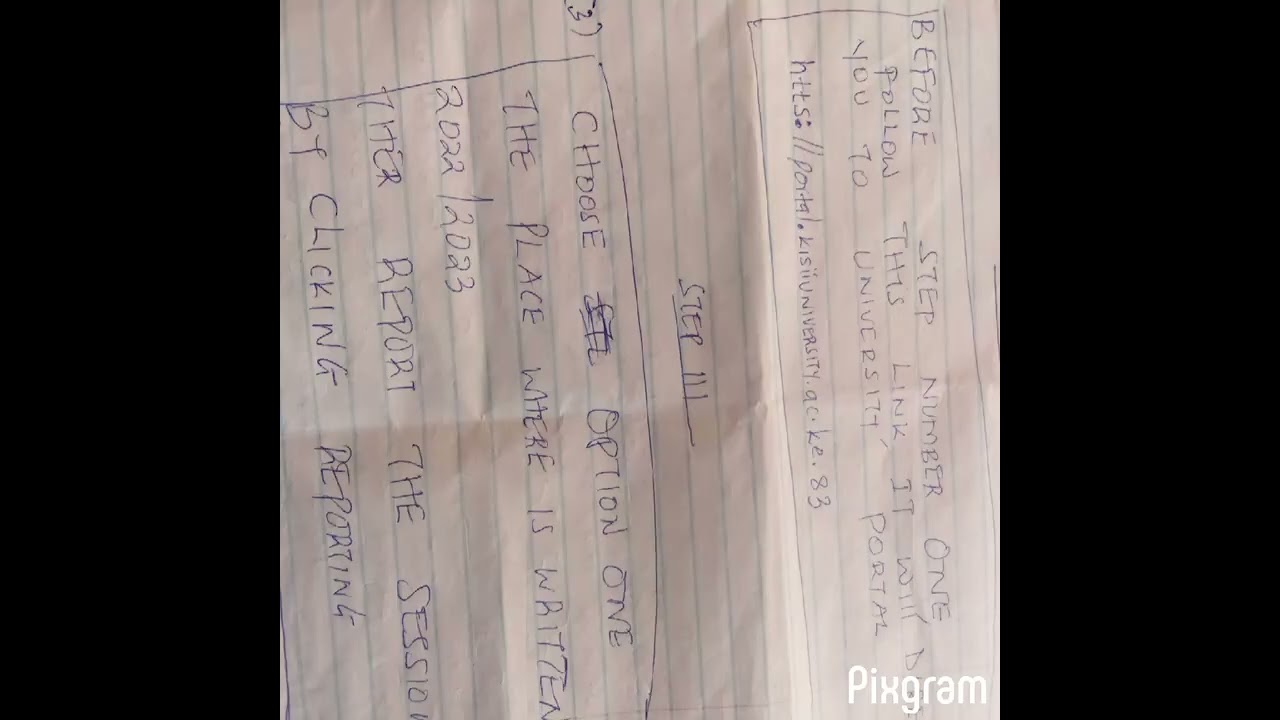 BEFORE STEP NUMBER ONE
FOLLOW THIS LINK IT WILL
YOU TO UNIVERSITY PORTAL
https://portal.kisiiuniversity.ac.ke.83
STEP III
3)
CHOOSE OPTION ONE
THE PLACE WHERE IS WRITTEN
2022/2023
THER REPORT THE SESSION
By CLICKING REPORTING
Pixgram